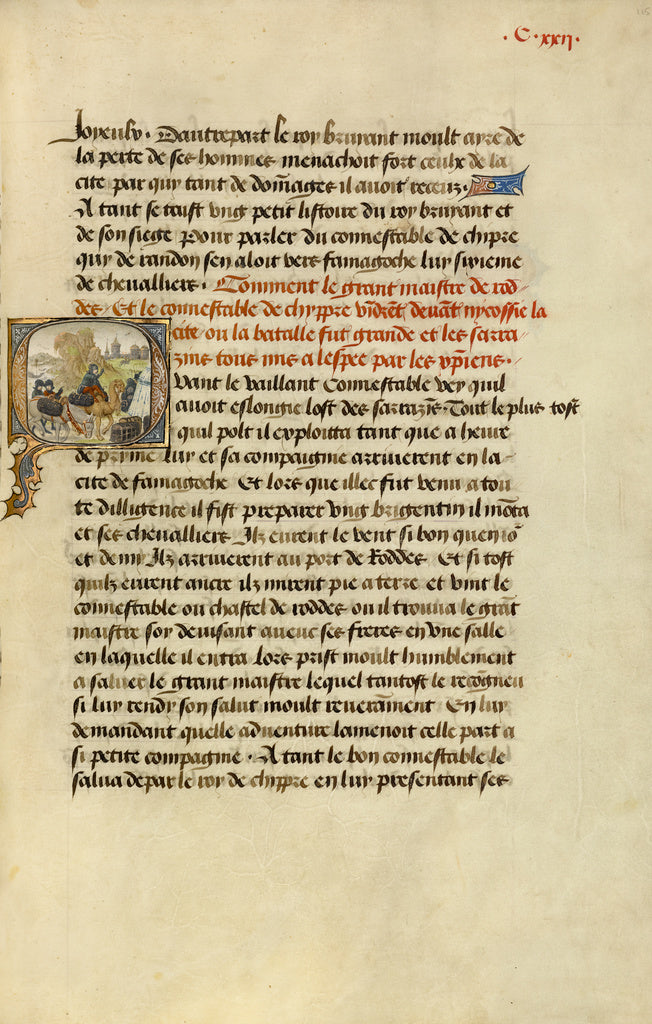 115
· C · xxij ·
Joyeulx · Daultrepart le roy bruyant moult ayre de
la perte de ses hommes menachoit fort ceulx de la
cite par quy tant de dom̄ages il avoit receuz ·
A tant se taist ung petit listoire du roy bruyant et
de son siege pour parler du connestable de chipre
quy de randon sen aloit vers famagoche luy sixieme
de chevalliers · Comment le grant maistre de rod-
des · Et le connestable de chyppre vindrēt devāt nycossie la
cite ou la bataille fut grande et les sarra-
zins tous mis a lespee par les xpiens ·
Uant le vaillant connestable vey quil
avoit eslongie lost des sarrazīs · Tout le plus tost
quil polt il exploitta tant que a heure
de pryme luy et sa compaignie arriverent en la
cite de famagoche Et lors que illec fut venu a tou
te dilligence il fist preparer ung brigentin il mōta
et ses chevalliers Ilz eurent le vent si bon quen ·i·
et demy Ilz arriverent au port de Roddes Et si tost
quilz eurent ancre ilz mirent pie a terre et vint le
connestable ou chastel de roddes ou il trouva le grāt
maistre soy devisant avenc ses freres en une salle
en laquelle il entra Lors prist moult humblement
a saluer le grant maistre lequel tantost le recōgneu
si luy rendy son salut moult reveramment En luy
demandant quelle adventure lamenoit celle part a
si petite compagnie · A tant le bon connestable le
salua de par le roy de chippre en luy presentant ses